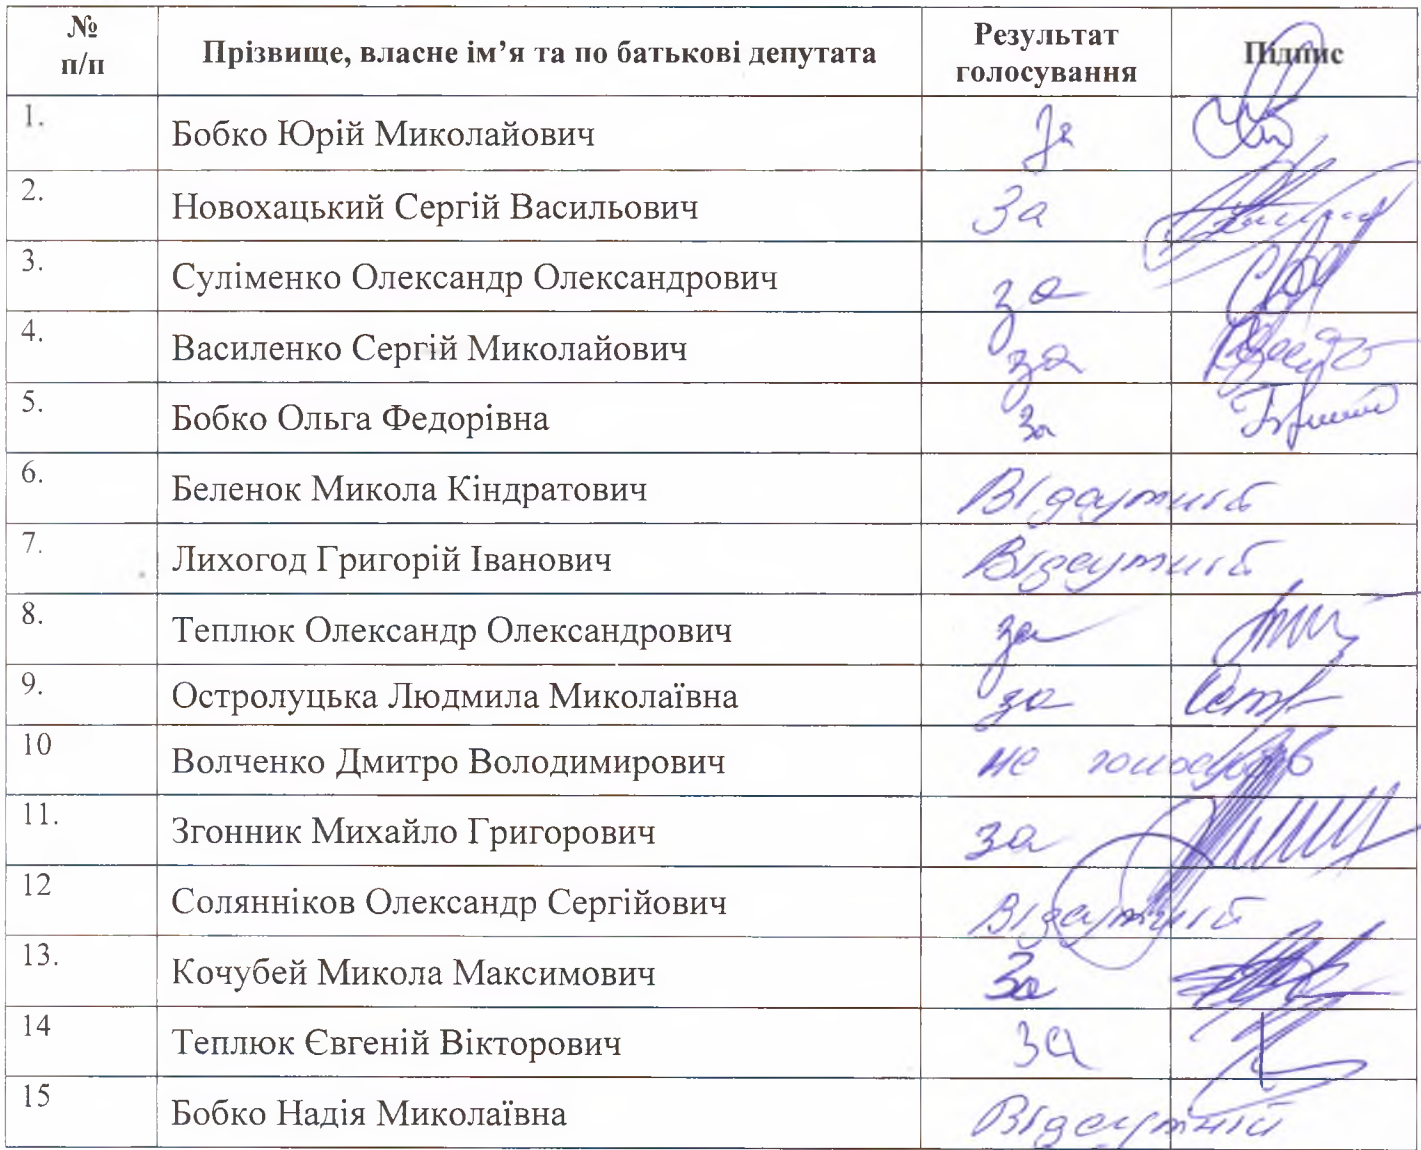 № п/п Прізвище, власне ім’я та по батькові депутата Результат голосування Підпис
1. Бобко Юрій Миколайович за
2. Новохацький Сергій Васильович За
3. Суліменко Олександр Олександрович за
4. Василенко Сергій Миколайович за
5. Бобко Ольга Федорівна за
6. Беленок Микола Кіндратович Відсутній
7. Лихогод Григорій Іванович Відсутній
8. Теплюк Олександр Олександрович за
9. Остролуцька Людмила Миколаївна за
10 Волченко Дмитро Володимирович не голосував
11. Згонник Михайло Григорович за
12 Солянніков Олександр Сергійович Відсутній
13. Кочубей Микола Максимович За
14 Теплюк Євгеній Вікторович за
15 Бобко Надія Миколаївна Відсутній